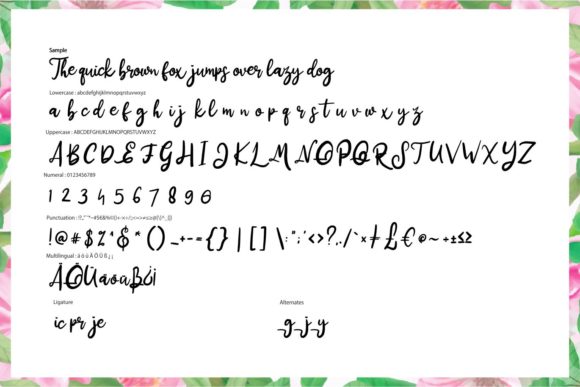 Sample
The quick brown fox jumps over lazy dog
Lowercase : abcdefghijklmnopqrstuvwxyz
a b c d e f g h i j k l m n o p q r s t u v w x y
Uppercase : ABCDEFGHIJKLMNOPQRSTUVWXYZ
A B C D E F G H I J K L M N O P Q R S T U V W X Y Z
Numeral : 0123456789
1 2 3 4 5 6 7 8 9 0
Punctuation :
! @ # $ % ^ & * ( ) _ + - = { } | [ ] \ : " ; ' < > ? , . / ` × ‡ £ € ~ ÷ ± ≤ ≥
Multilingual : ä ö ü Ä Ö Ü ß ¿ ¡
Ä Ö Ü ä ö ü ß ¿ ¡
Ligature
ic pr je
Alternates
_g _j _y